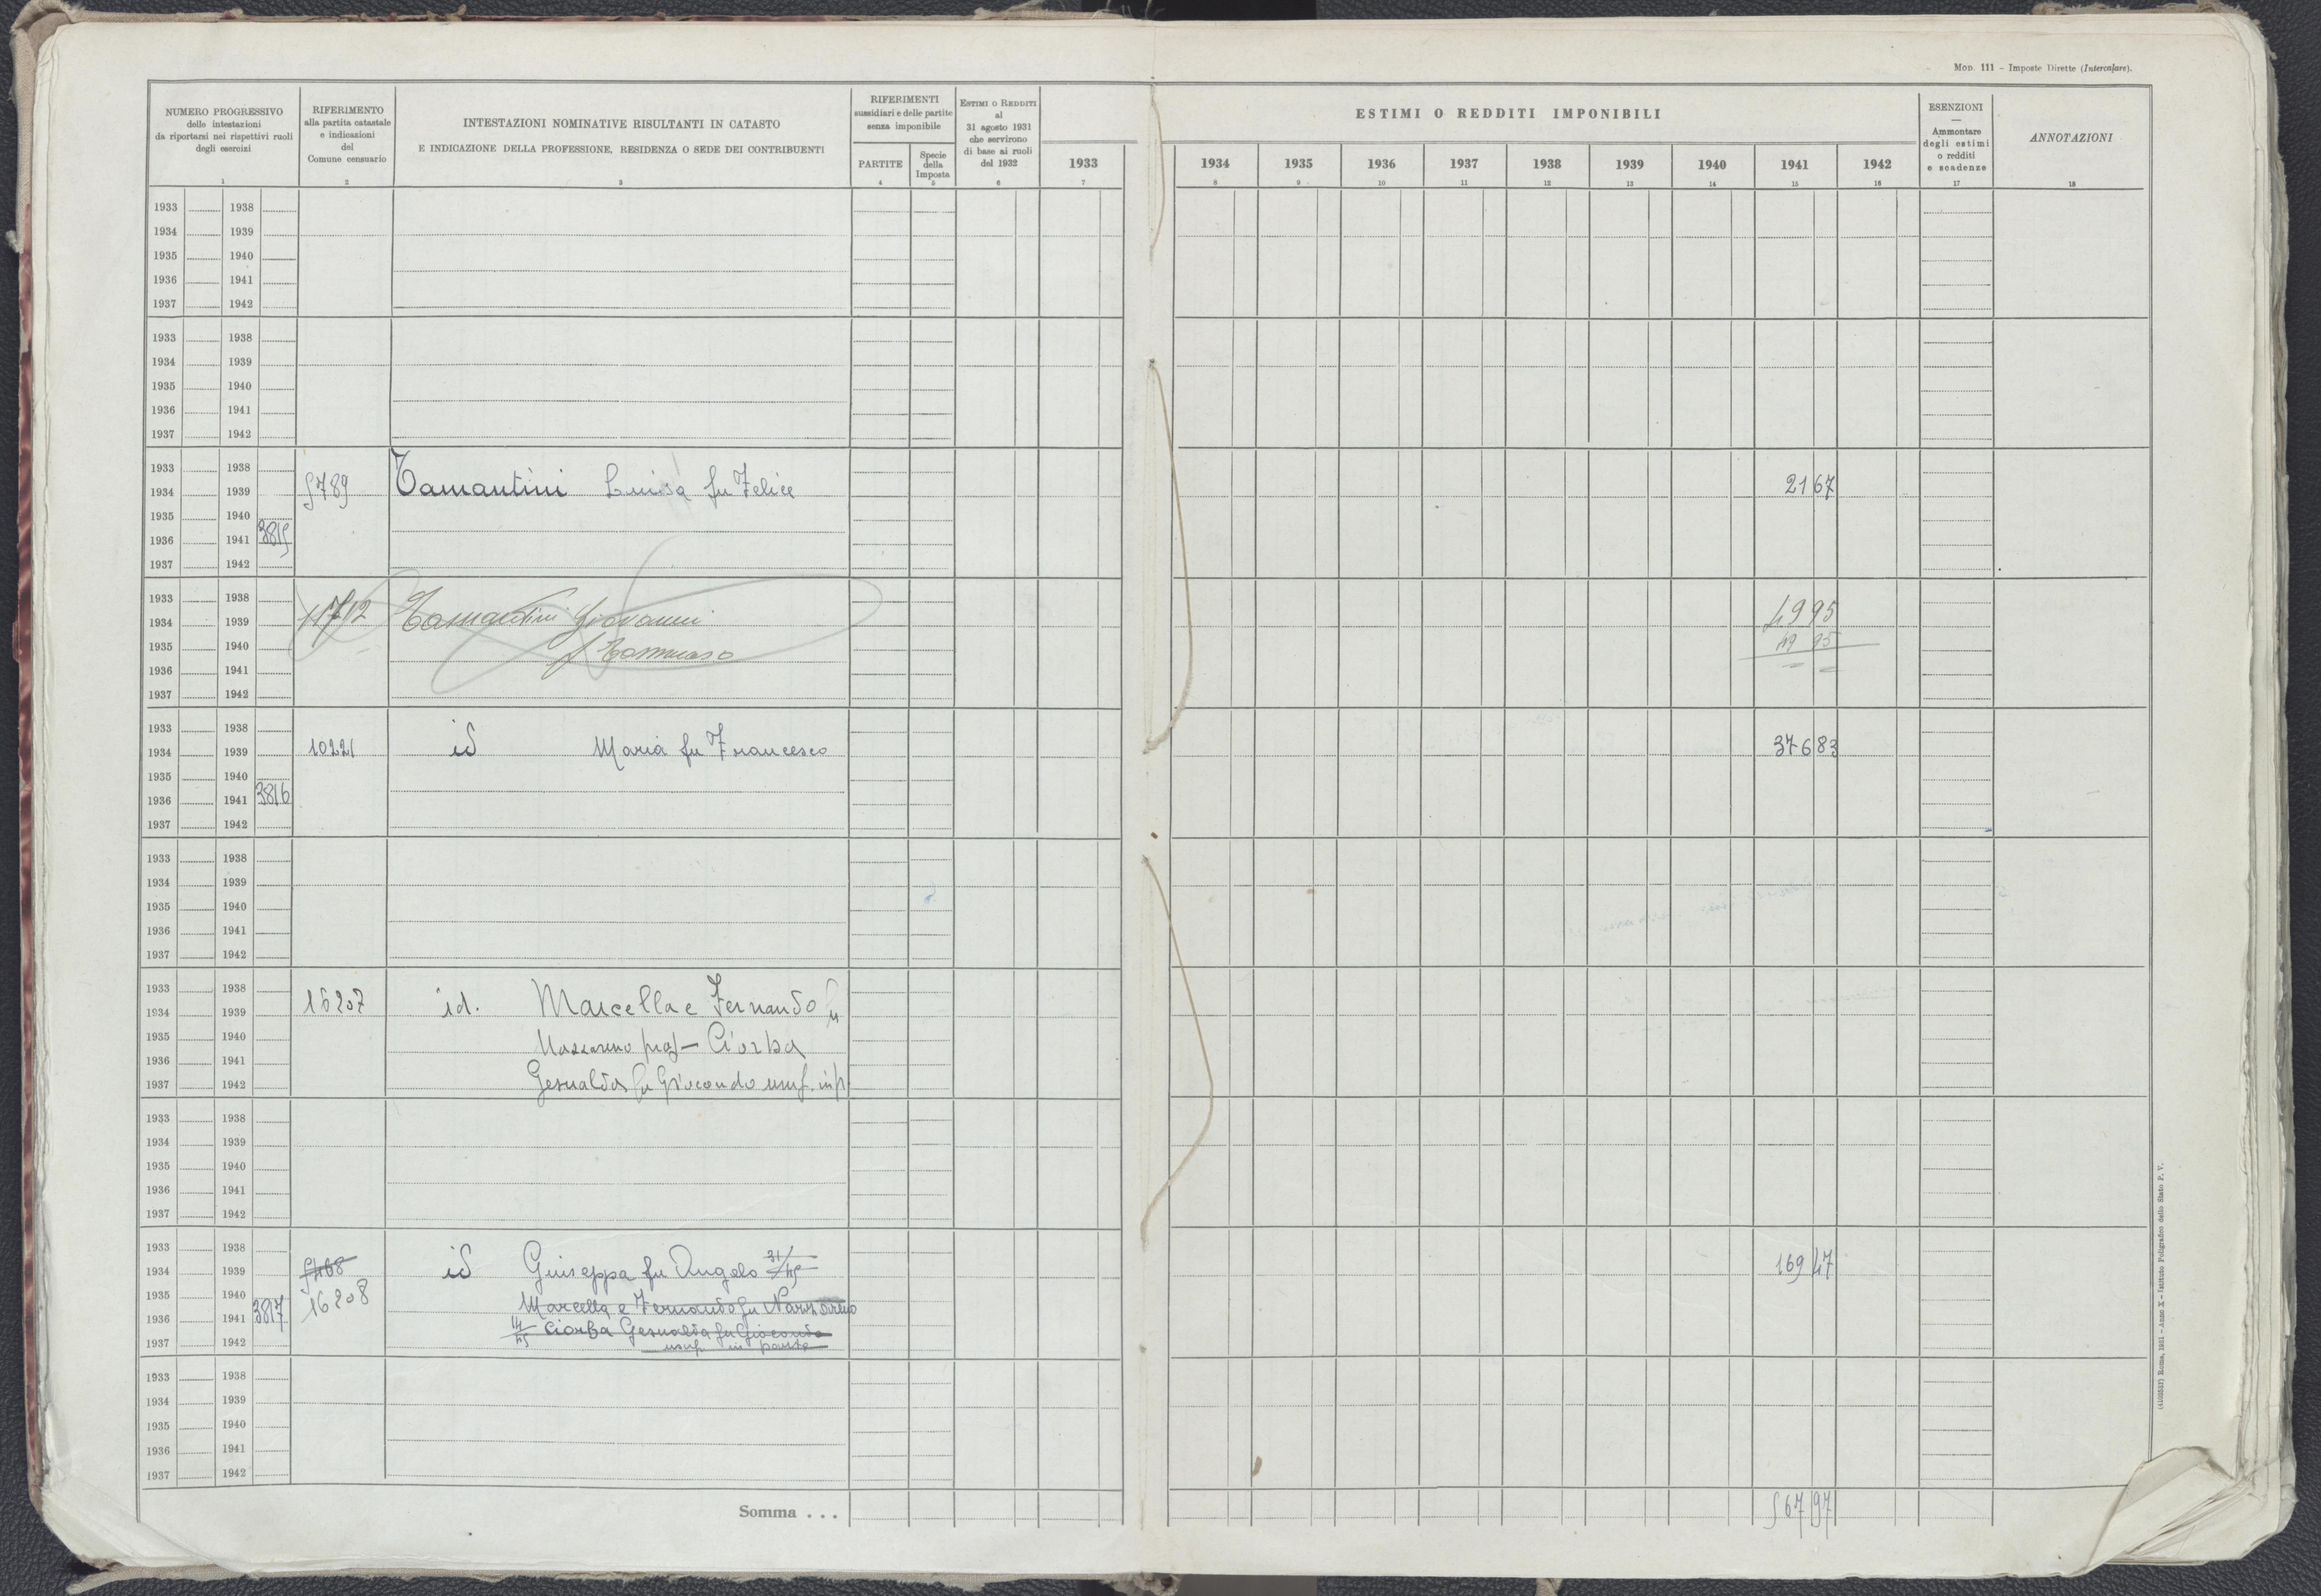 Mod. 111 – Imposte Dirette (Intercalare).
NUMERO PROGRESSIVO
delle intestazioni
da riportarsi nei rispettivi ruoli
degli esercizi
1
RIFERIMENTO
alla partita catastale
e indicazioni
del
Comune censuario
2
INTESTAZIONI NOMINATIVE RISULTANTI IN CATASTO
E INDICAZIONE DELLA PROFESSIONE, RESIDENZA O SEDE DEI CONTRIBUENTI
3
RIFERIMENTI
sussidiari e delle partite
senza imponibile
PARTITE
4
Specie
della
Imposta
5
Estimi o Redditi
al
31 agosto 1931
che servirono
di base ai ruoli
del 1932
6
1933
7
ESTIMI O REDDITI IMPONIBILI
1934 1935 1936 1937 1938 1939 1940 1941 1942
8 9 10 11 12 13 14 15 16
ESENZIONI
—
Ammontare
degli estimi
o redditi
e scadenze
17
ANNOTAZIONI
18
1933 1938
1934 1939
1935 1940
1936 1941
1937 1942
1933 1938
1934 1939
1935 1940
1936 1941
1937 1942
1933 1938
1934 1939 5789 Tamantini Luisa fu Felice 21 67
1935 1940
1936 1941 3815
1937 1942
1933 1938
1934 1939 11712 Tamantini Giovanni 49 95
1935 1940 f Tommaso 49 95
1936 1941
1937 1942
1933 1938
1934 1939 10221 id Maria fu Francesco 376 83
1935 1940
1936 1941 3816
1937 1942
1933 1938
1934 1939
1935 1940
1936 1941
1937 1942
1933 1938
1934 1939 16207 id. Marcella e Fernando fu
1935 1940 Nazzareno prop – Ciorba
1936 1941
1937 1942 Gesualda fu Giocondo usuf. in p
1933 1938
1934 1939
1935 1940
1936 1941
1937 1942
1933 1938
1934 1939 5468 id Giuseppa fu Angelo 31/45 169 47
1935 1940 16208
1936 1941 3817 Marcella e Fernando fu Nazzareno
1937 1942 Ciorba Gesualda fu Giocondo
usuf. in parte
1933 1938
1934 1939
1935 1940
1936 1941
1937 1942
Somma . . . 567 97
Roma, 1931 – Anno X – Istituto Poligrafico dello Stato P. V.